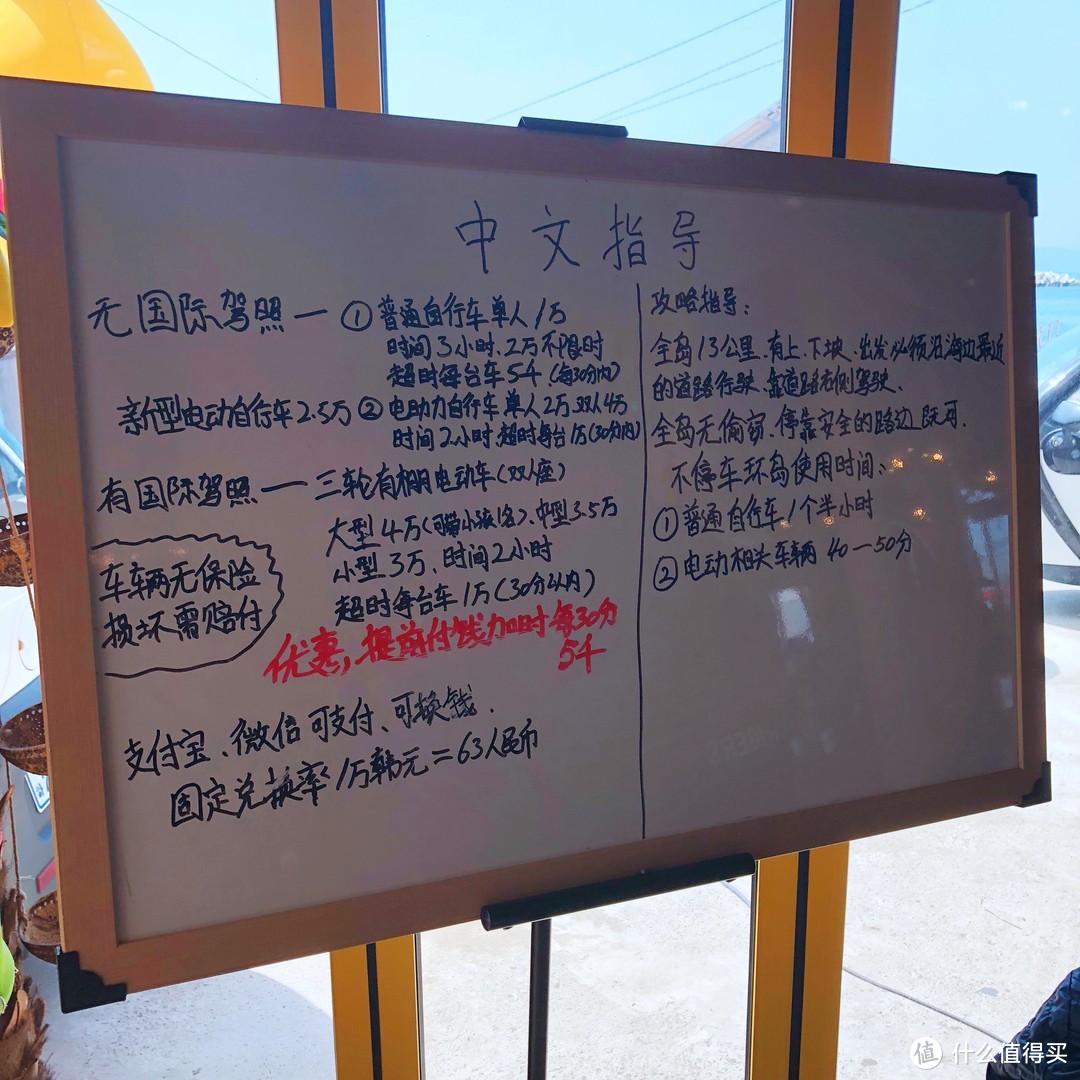 中文指导
无国际驾照一①普通自行车单人1万
时间3小时、2万不限时
超时每台车5千(每30分内)
新型电动自行车2.5万②电助力自行车单人2万双人4万
时间2小时、超时每台1万(30分内)
有国际驾照一三轮有棚电动车(双人座)
大型4万(可带小孩1名)、中型3.5万
小型3万、时间2小时
超时每台车1万(30分以内)
车车两无保险
损坏需赔付
优惠,提前付钱加时每30分
5千
支付宝、微信可支付、可换钱.
固定兑换率1万韩元=63人民币
攻略指导:
全岛13公里、有上、下坡、出发必须沿海边最近
的道路行驶、靠道路右侧驾驶、
全岛无偷窃、停靠安全的路边既可.
不停车环岛使用时间:
①普通自行车1个半小时
②电动相关车辆40—50分
值 什么值得买